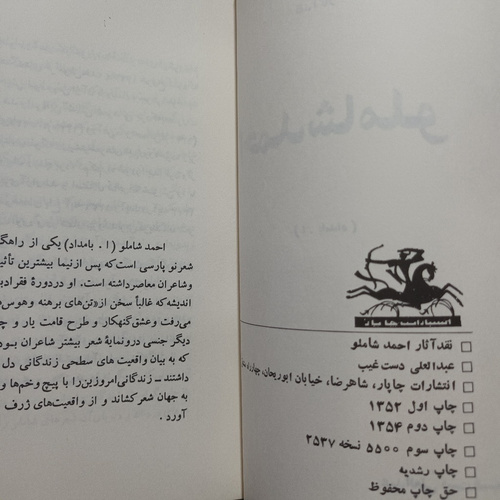 احمد شاملو (ا . بامداد) یکی از راهگ
شعرنو پارسی است که پس ازنیما بیشترین تأثی
وشاعران معاصرداشته است. او دردورهٔ فقرادب
اندیشه که غالباً سخن از«تن‌های برهنه وهوس‌
می‌رفت وعشق گنهکار و طرح قامت یار و چ
دیگر جنسی درونمایهٔ شعر بیشتر شاعران بود
که به بیان واقعیت های سطحی زندگانی دل
داشتند ـ زندگانی‌امروزین‌را با پیچ وخم‌ها و
به جهان شعرکشاند و از واقعیت‌های ژرف
آورد .
انتشارات چاپار
□ نقدآثار احمد شاملو
□ عبدالعلی دست غیب
□ انتشارات چاپار، شاهرضا، خیابان ابوریحان،
□ چاپ اول ۱۳۵۲
□ چاپ دوم ۱۳۵۴
□ چاپ سوم ۵۵۰۰ نسخه ۲۵۳۷
□ چاپ رشدیه
□ حق چاپ محفوظ